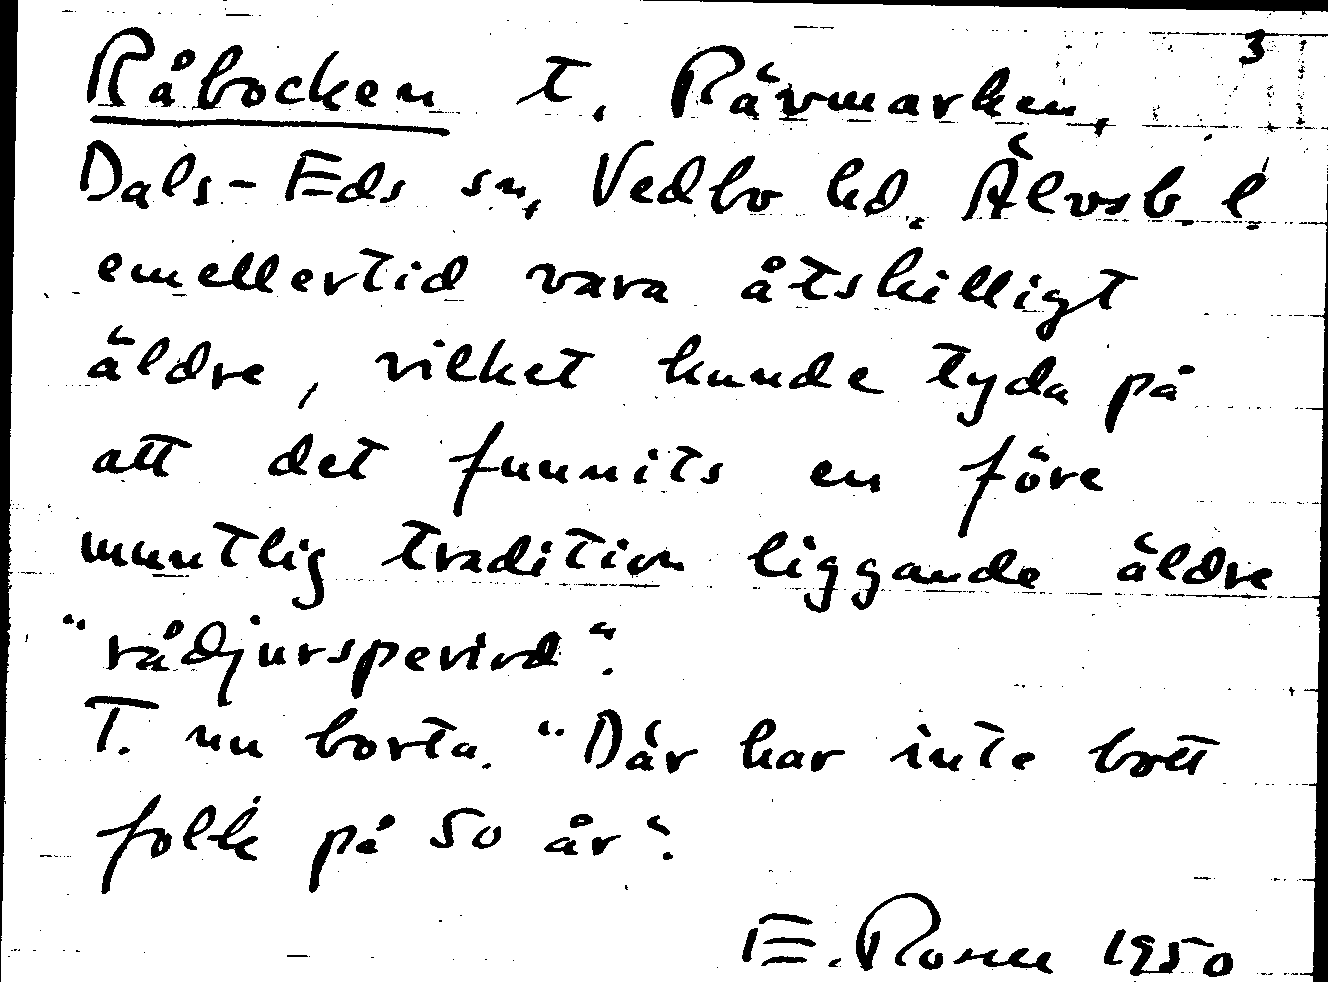 3
Råbocken t. Rävmarken,
Dals-Eds sn, Vedbo hd. Älvsb. l.
emellertid vara åtskilligt
äldre, vilket kunde tyda på
att det funnits en före
muntlig tradition liggande äldre
"rådjursperiod".
T. nu borta. "Där har inte bott
folk på 50 år".
E. 1950